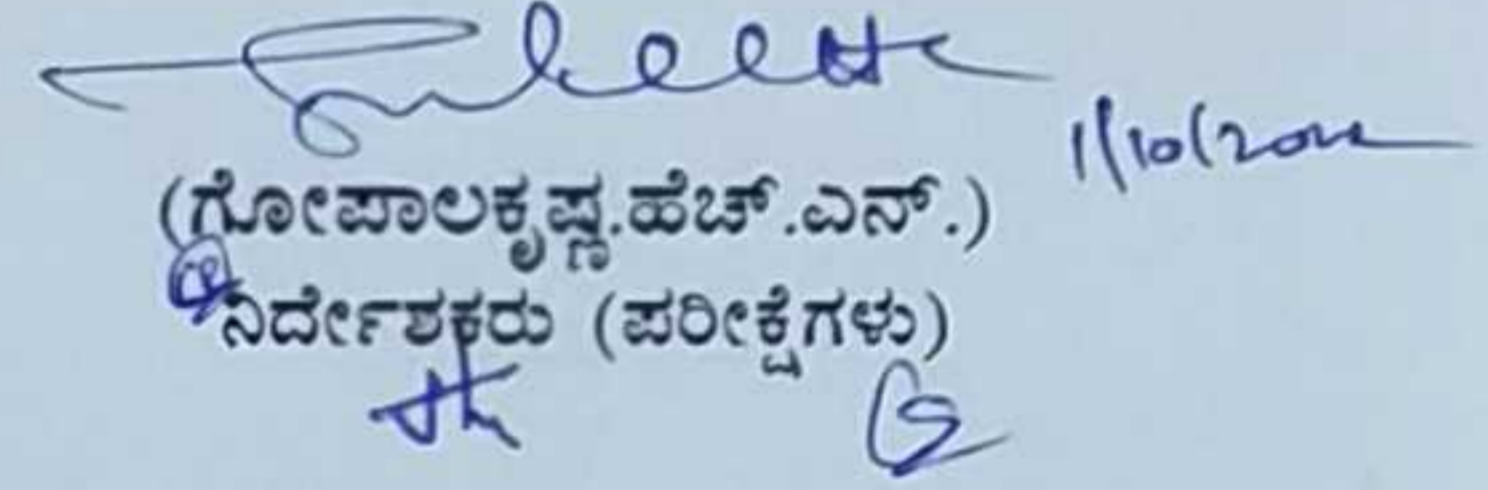 1/10/202
(ಗೋಪಾಲಕೃಷ್ಣ.ಹೆಚ್.ಎನ್.)
ನಿರ್ದೇಶಕರು (ಪರೀಕ್ಷೆಗಳು)